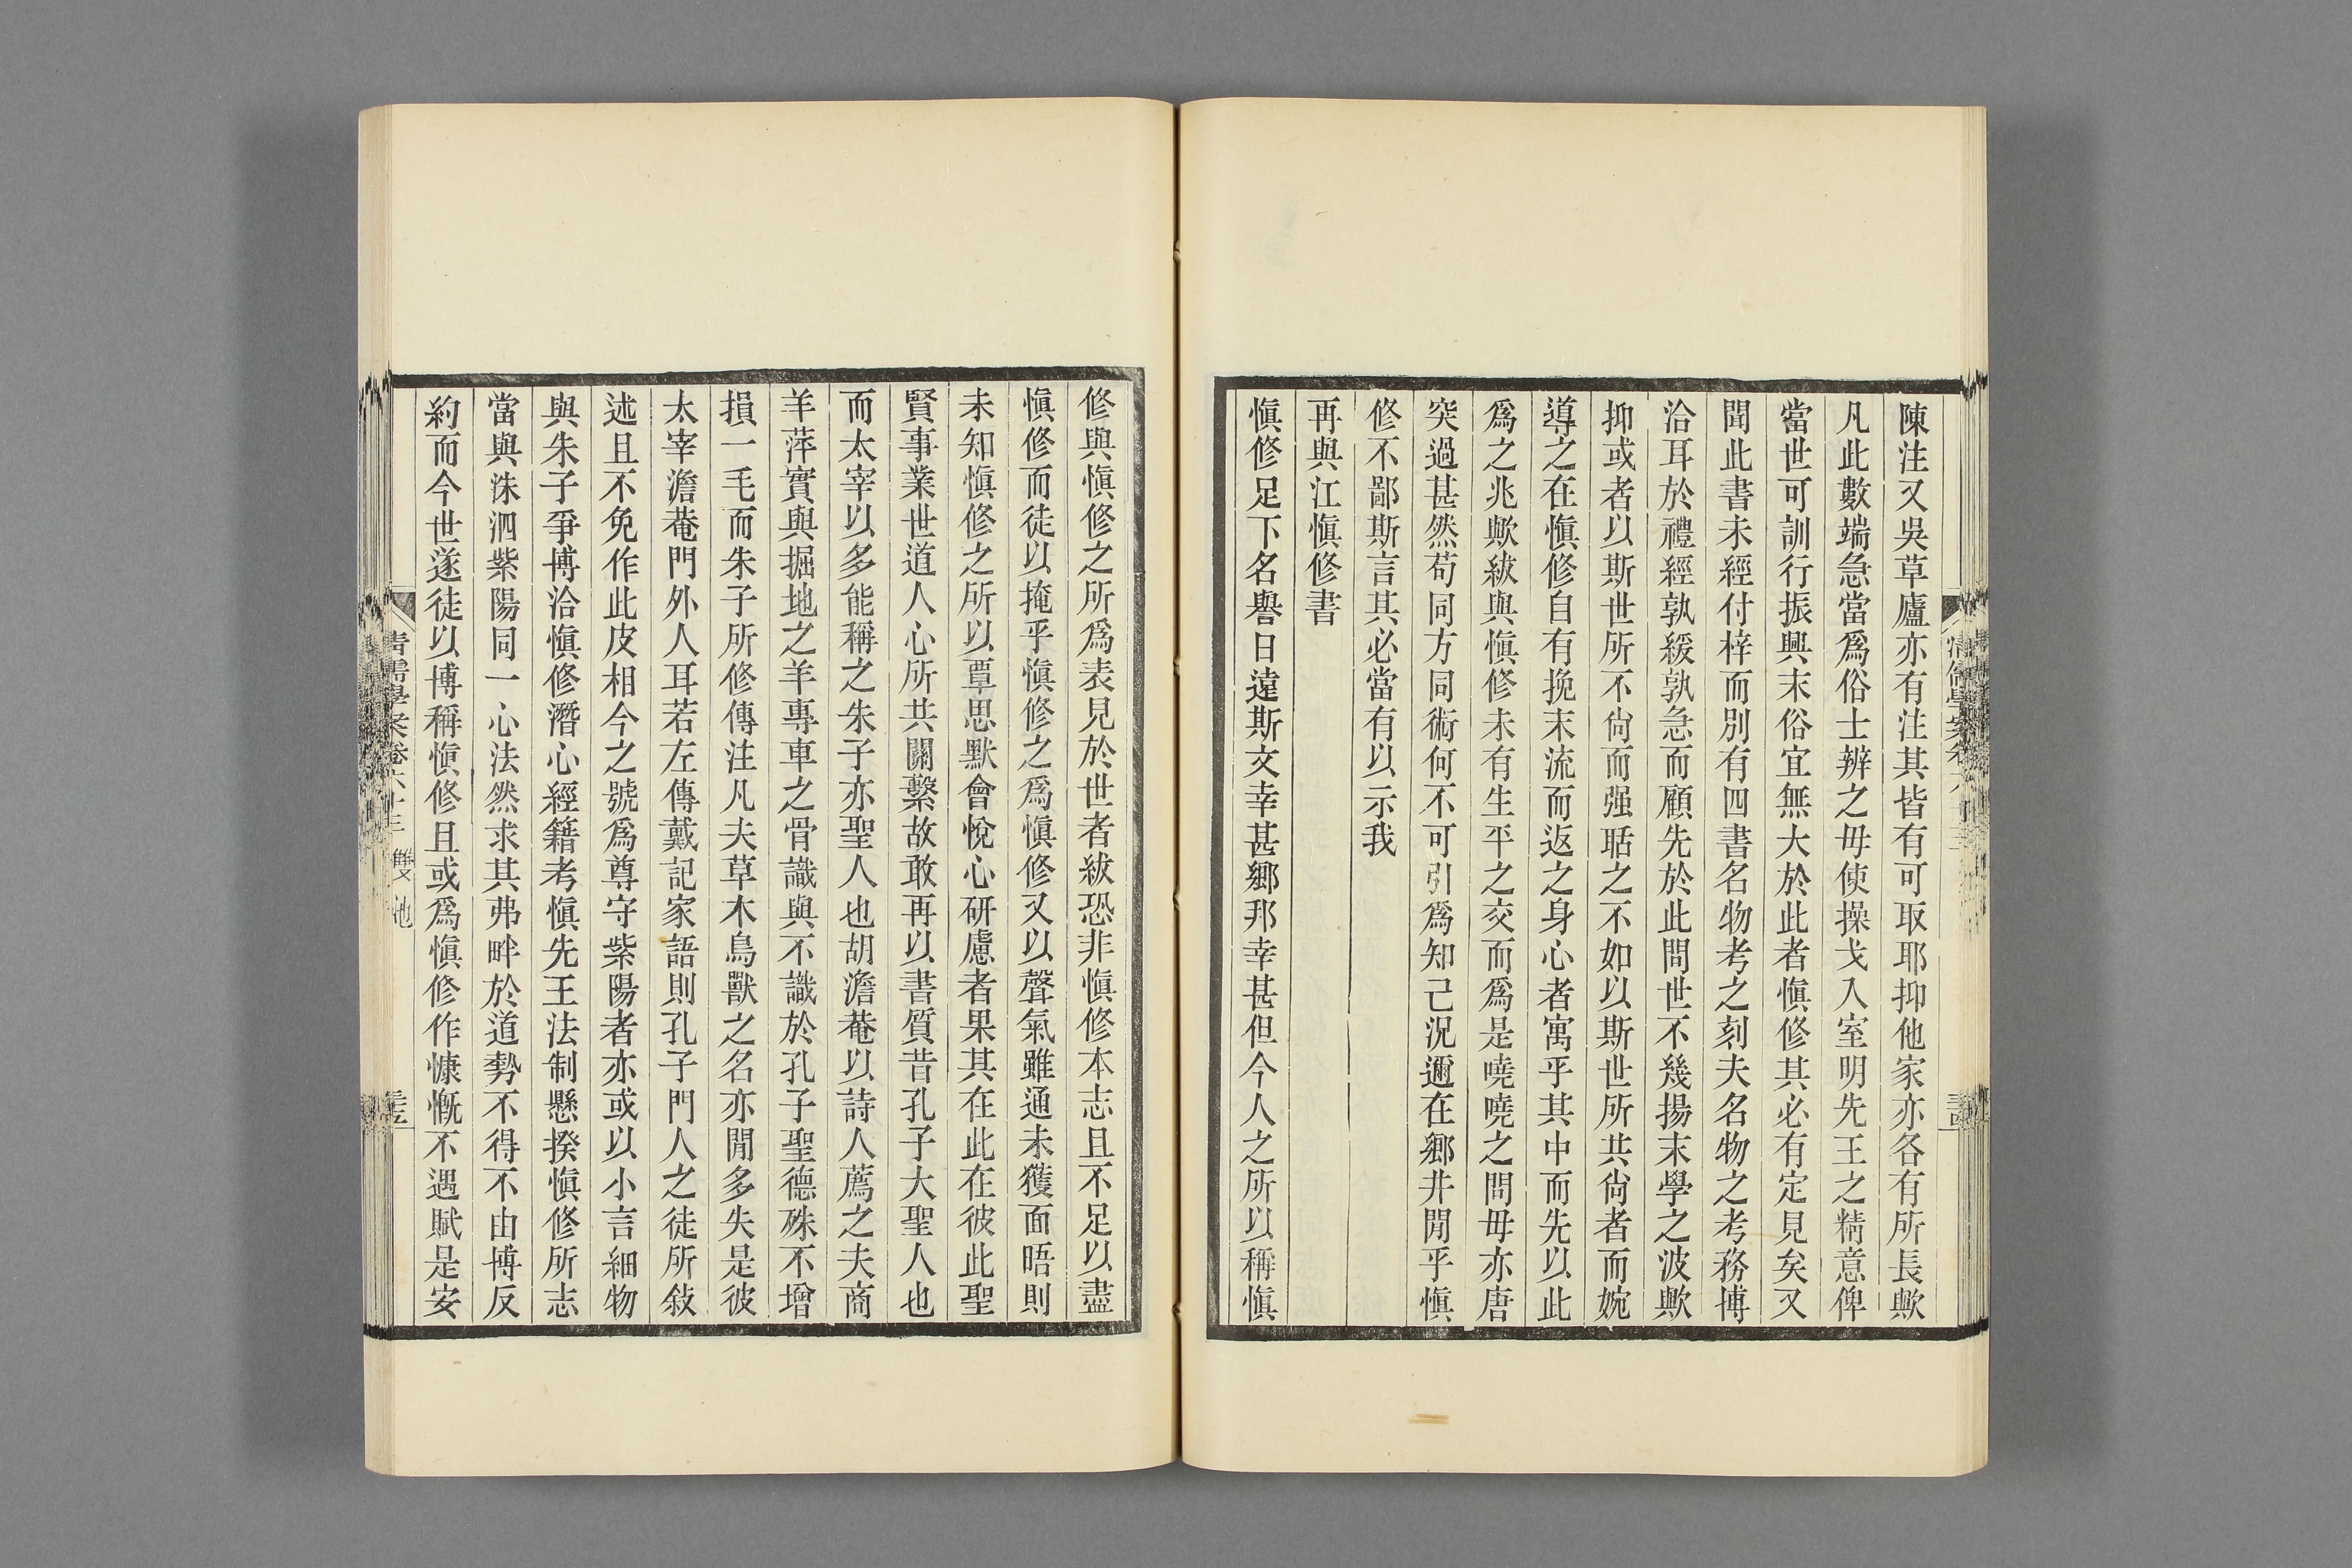 陳注又吳草廬亦有注其皆有可取耶抑他家亦各有所長歟
凡此數端急當爲俗士辨之毋使操戈入室明先王之精意俾
當世可訓行振興末俗宜無大於此者愼修其必有定見矣又
聞此書未經付梓而別有四書名物考之刻夫名物之考務博
洽耳於禮經孰緩孰急而顧先於此問世不幾揚末學之波歟
抑或者以斯世所不尙而强聒之不如以斯世所共尙者而婉
導之在愼修自有挽末流而返之身心者寓乎其中而先以此
爲之兆歟紱與愼修未有生平之交而爲是嘵嘵之問毋亦唐
突過甚然苟同方同術何不可引爲知己況邇在鄉井閒乎愼
修不鄙斯言其必當有以示我
再與江愼修書
愼修足下名譽日遠斯文幸甚鄉邦幸甚但今人之所以稱愼
修與愼修之所爲表見於世者紱恐非愼修本志且不足以盡
愼修而徒以掩乎愼修之爲愼修又以聲氣雖通未獲面晤則
未知愼修之所以覃思默會悅心研慮者果其在此在彼此聖
賢事業世道人心所共關繫故敢再以書質昔孔子大聖人也
而太宰以多能稱之朱子亦聖人也胡澹菴以詩人薦之夫商
羊萍實與掘地之羊專車之骨識與不識於孔子聖德殊不增
損一毛而朱子所修傳注凡夫草木鳥獸之名亦閒多失是彼
太宰澹菴門外人耳若左傳戴記家語則孔子門人之徒所敍
述且不免作此皮相今之號爲尊守紫陽者亦或以小言細物
與朱子爭博洽愼修潛心經籍考愼先王法制懸揆愼修所志
當與洙泗紫陽同一心法然求其弗畔於道勢不得不由博反
約而今世遂徒以博稱愼修且或爲愼修作慷慨不遇賦是安
清儒學案卷六十三 雙池